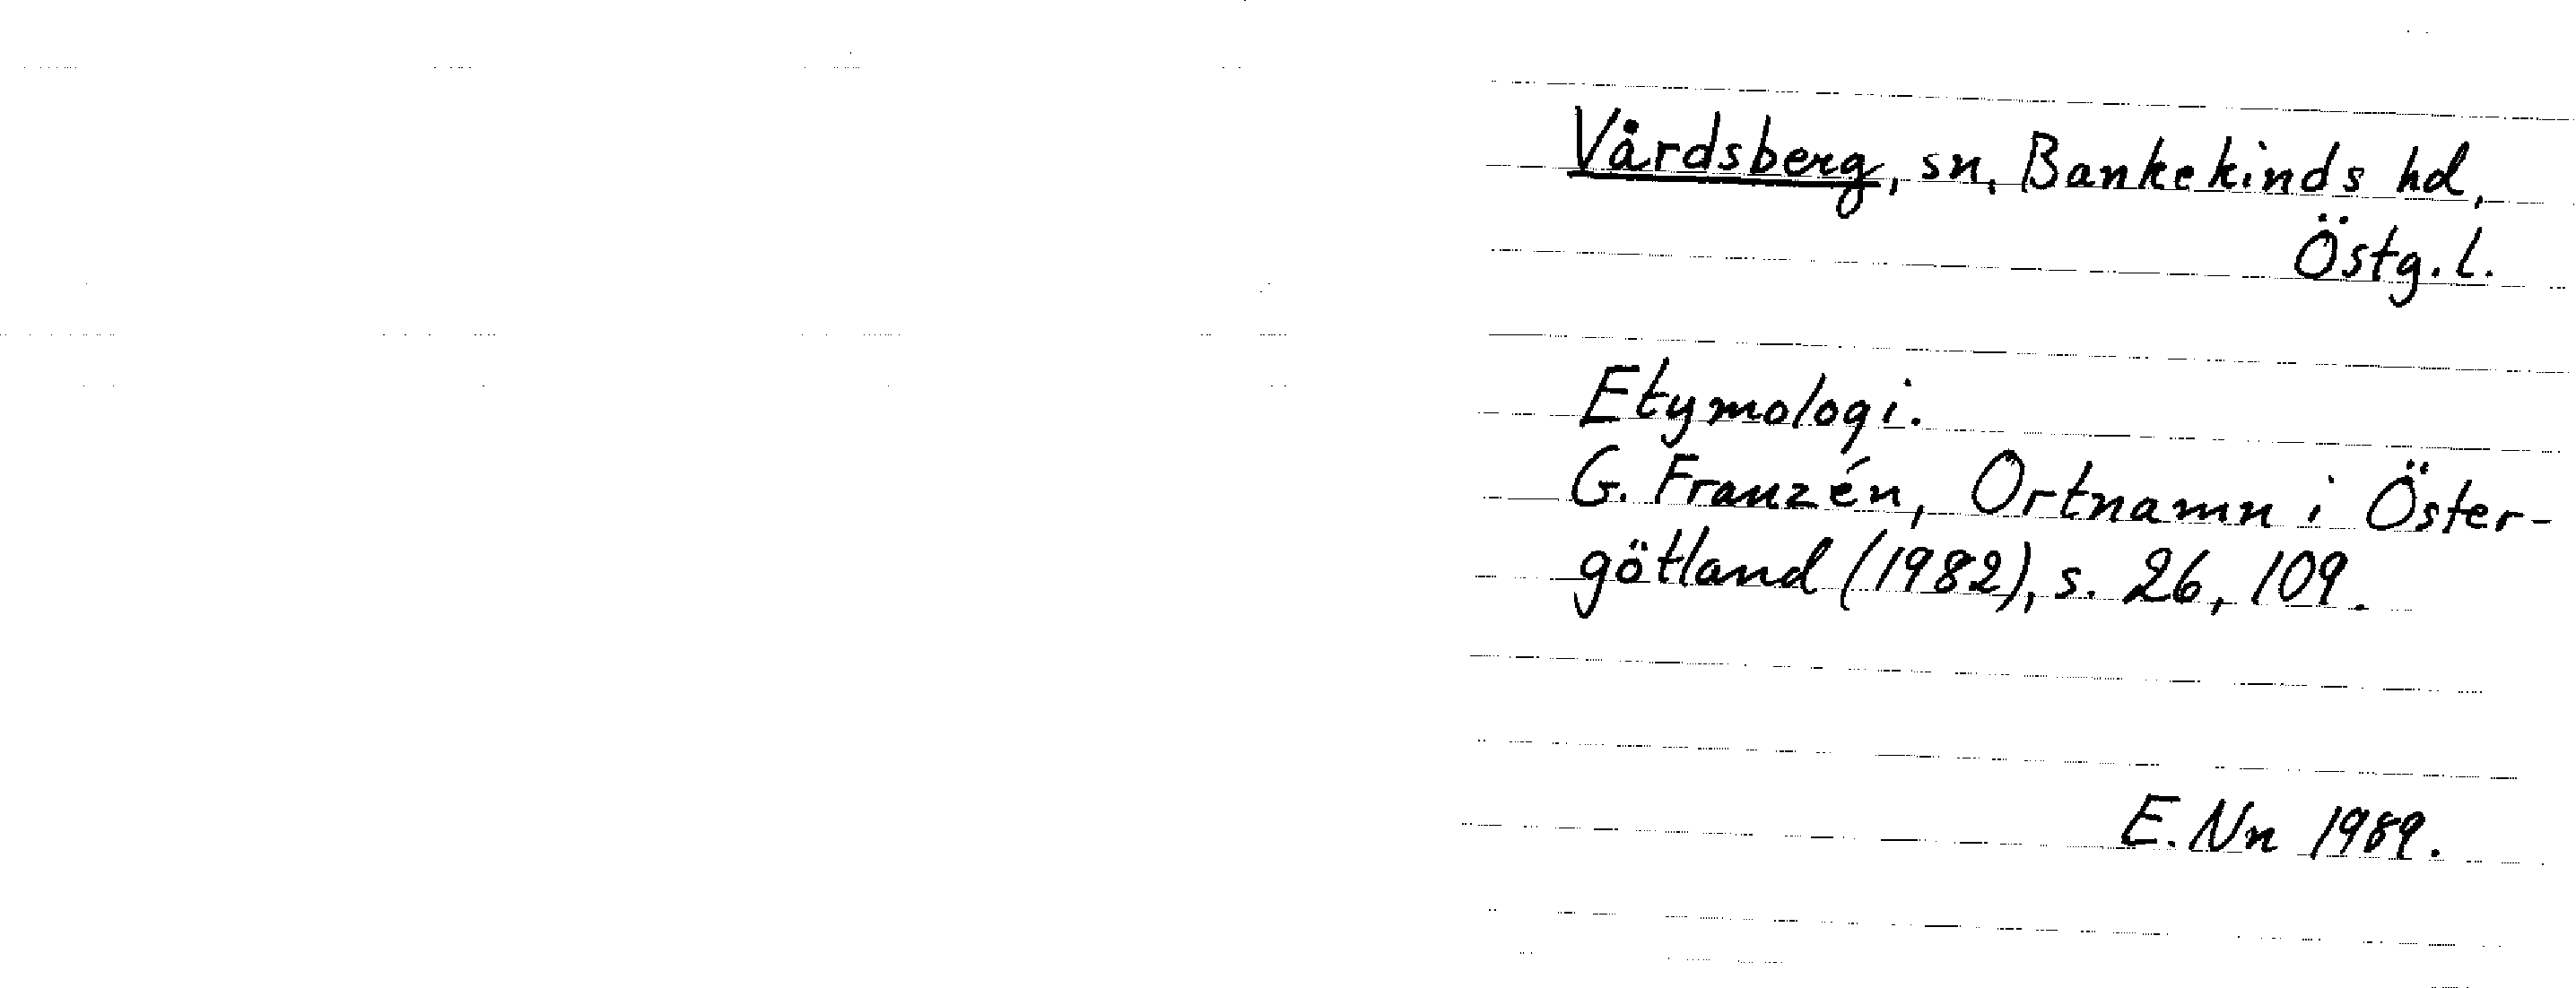 Vårdsberg, sn, Bankekinds hd,
Östg. l.
Etymologi.
G. Franzén, Ortnamn i Öster-
götland (1982), s. 26, 109.
E. Nn 1989.